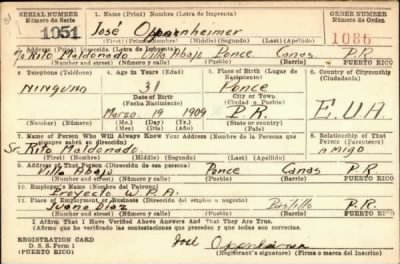 SERIAL NUMBER
Número de Serie
1051
1. Name (Print) Nombre (Letra de Imprenta)
José Oppenheimer
(First) (Primero) (Middle) (Segundo) (Last) (Apellido)
ORDER NUMBER
Número de Orden
1086
2. Address (Print) Dirección (Letra de Imprenta)
℅ Rito Maldonado Villa Abajo Ponce Canas P.R.
(Number and street) (Número y calle) (Town) (Pueblo) (Barrio) PUERTO RICO
3. Telephone (Teléfono)
Ninguno
(Number) (Número)
4. Age in Years (Edad)
31
Date of Birth
(Fecha Nacimiento)
Marzo 19 1909
(Mo.) (Día) (Yr.) (Año)
5. Place of Birth (Lugar de Nacimiento)
Ponce
City or Town
(Ciudad o Pueblo)
P.R.
(State or country)
(Estado o país)
6. Country of Citizenship
(Ciudadanía)
E.U.A.
7. Name of Person Who Will Always Know Your Address (Nombre de la Persona que siempre sabrá su dirección)
Sr. Rito Maldonado
(First) (Nombre) (Middle) (Segundo) (Last) (Apellido)
8. Relationship of That Person (Parentesco)
amigo
9. Address of That Person (Dirección de esa persona)
Villa Abajo Ponce Canas P.R.
(Number and street) (Número y calle) (Town) (Pueblo) (Barrio) PUERTO RICO
10. Employer's Name (Nombre del Patrono)
Proyecto W.P.A.
11. Place of Employment or Business (Dirección del empleo o negocio)
Juana Diaz Pastillo P.R.
(Number and street) (Número y calle) (Town) (Pueblo) (Barrio) PUERTO RICO
I Affirm That I Have Verified Above Answers And That They Are True.
(Afirmo que he verificado las contestaciones que preceden y que todas son correctas.)
REGISTRATION CARD
D. S. S. Form 1
(PUERTO RICO)
José Oppenheimer
(Registrant's signature) (Firma o marca del Inscrito)